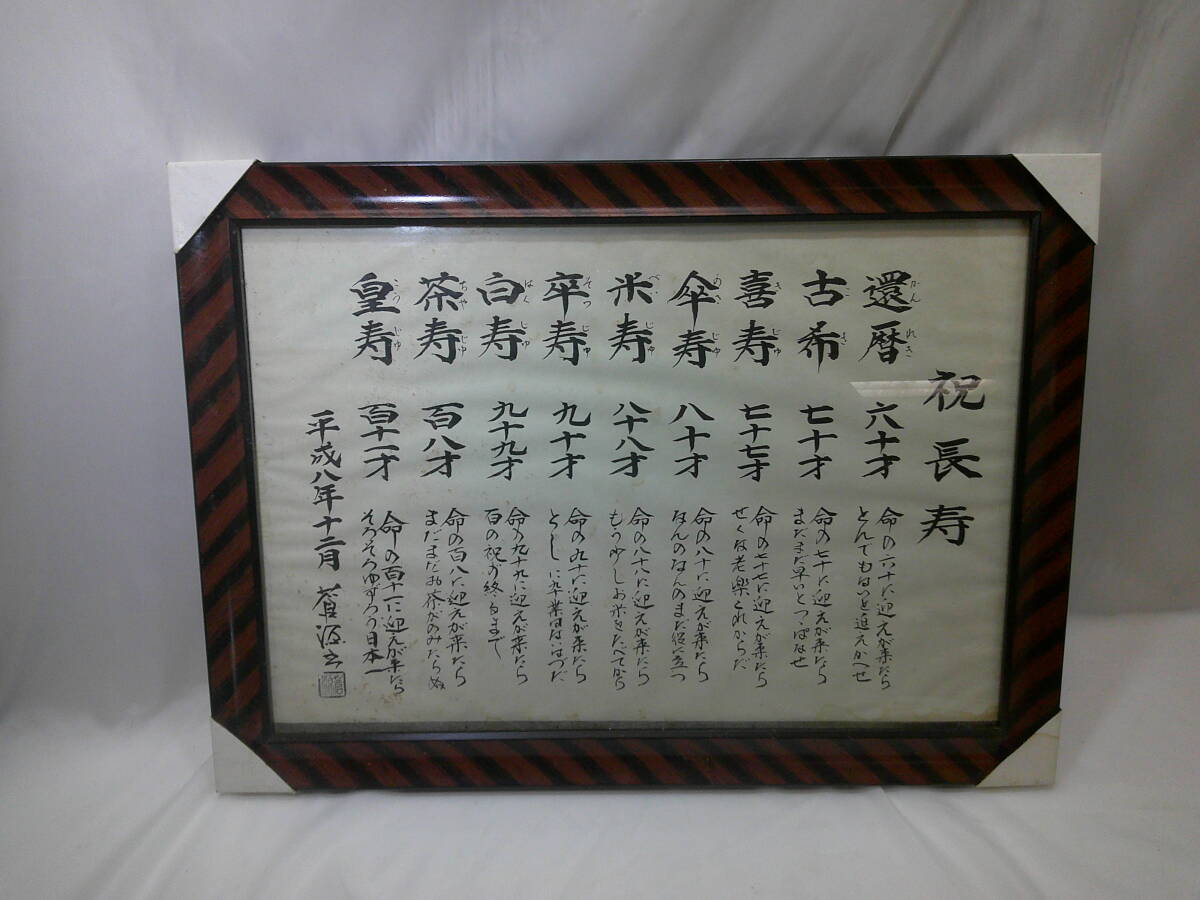 祝長寿
還暦 六十才
かんれき
命の六十に迎えが来たら
とんでもないと追えかへせ
古希 七十才
こき
命の七十に迎えが来たら
まだまだ早いとつっぱなせ
喜寿 七十七才
きじゅ
命の七十七に迎えが来たら
せくな老楽これからだ
傘寿 八十才
かさじゅ
命の八十に迎えが来たら
なんのなんのまだ役に立つ
米寿 八十八才
べじゅ
命の八十八に迎えが来たら
もう少しお米をたべてから
卒寿 九十才
そつじゅ
命の九十に迎えが来たら
としに卒業はないはづだ
白寿 九十九才
はくじゅ
命の九十九に迎えが来たら
百の祝が終るまで
茶寿 百八才
ちゃじゅ
命の百八に迎えが来たら
まだまだお茶がのみたらぬ
皇寿 百十一才
こうじゅ
命の百十一に迎えが来たら
そろそろゆずろう日本一
平成八年十二月